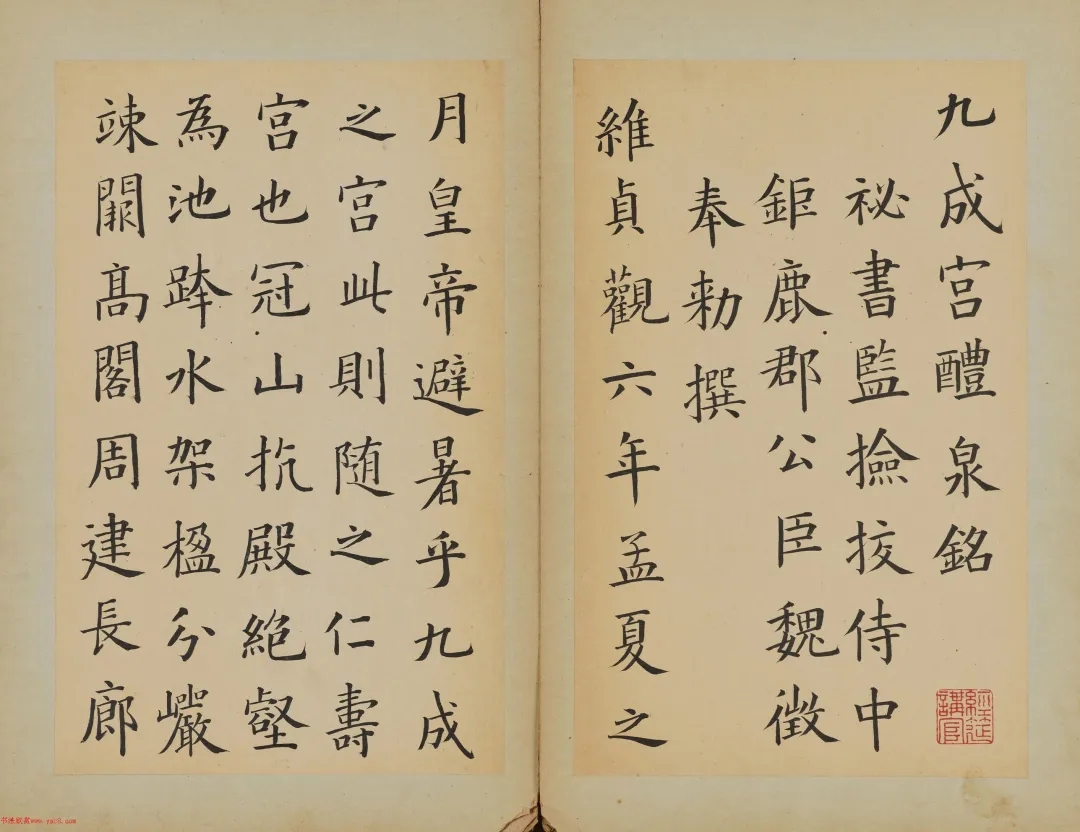 九成宫醴泉銘
祕書監撿挍侍中
鉅鹿郡公臣魏徵
奉勑撰
維貞觀六年孟夏之
月皇帝避暑乎九成
之宫此則随之仁壽
宫也冠山抗殿絶壑
為池跨水架楹分巖
竦闕髙閣周建長廊
經筵講官
书法欣赏www.yac8.com